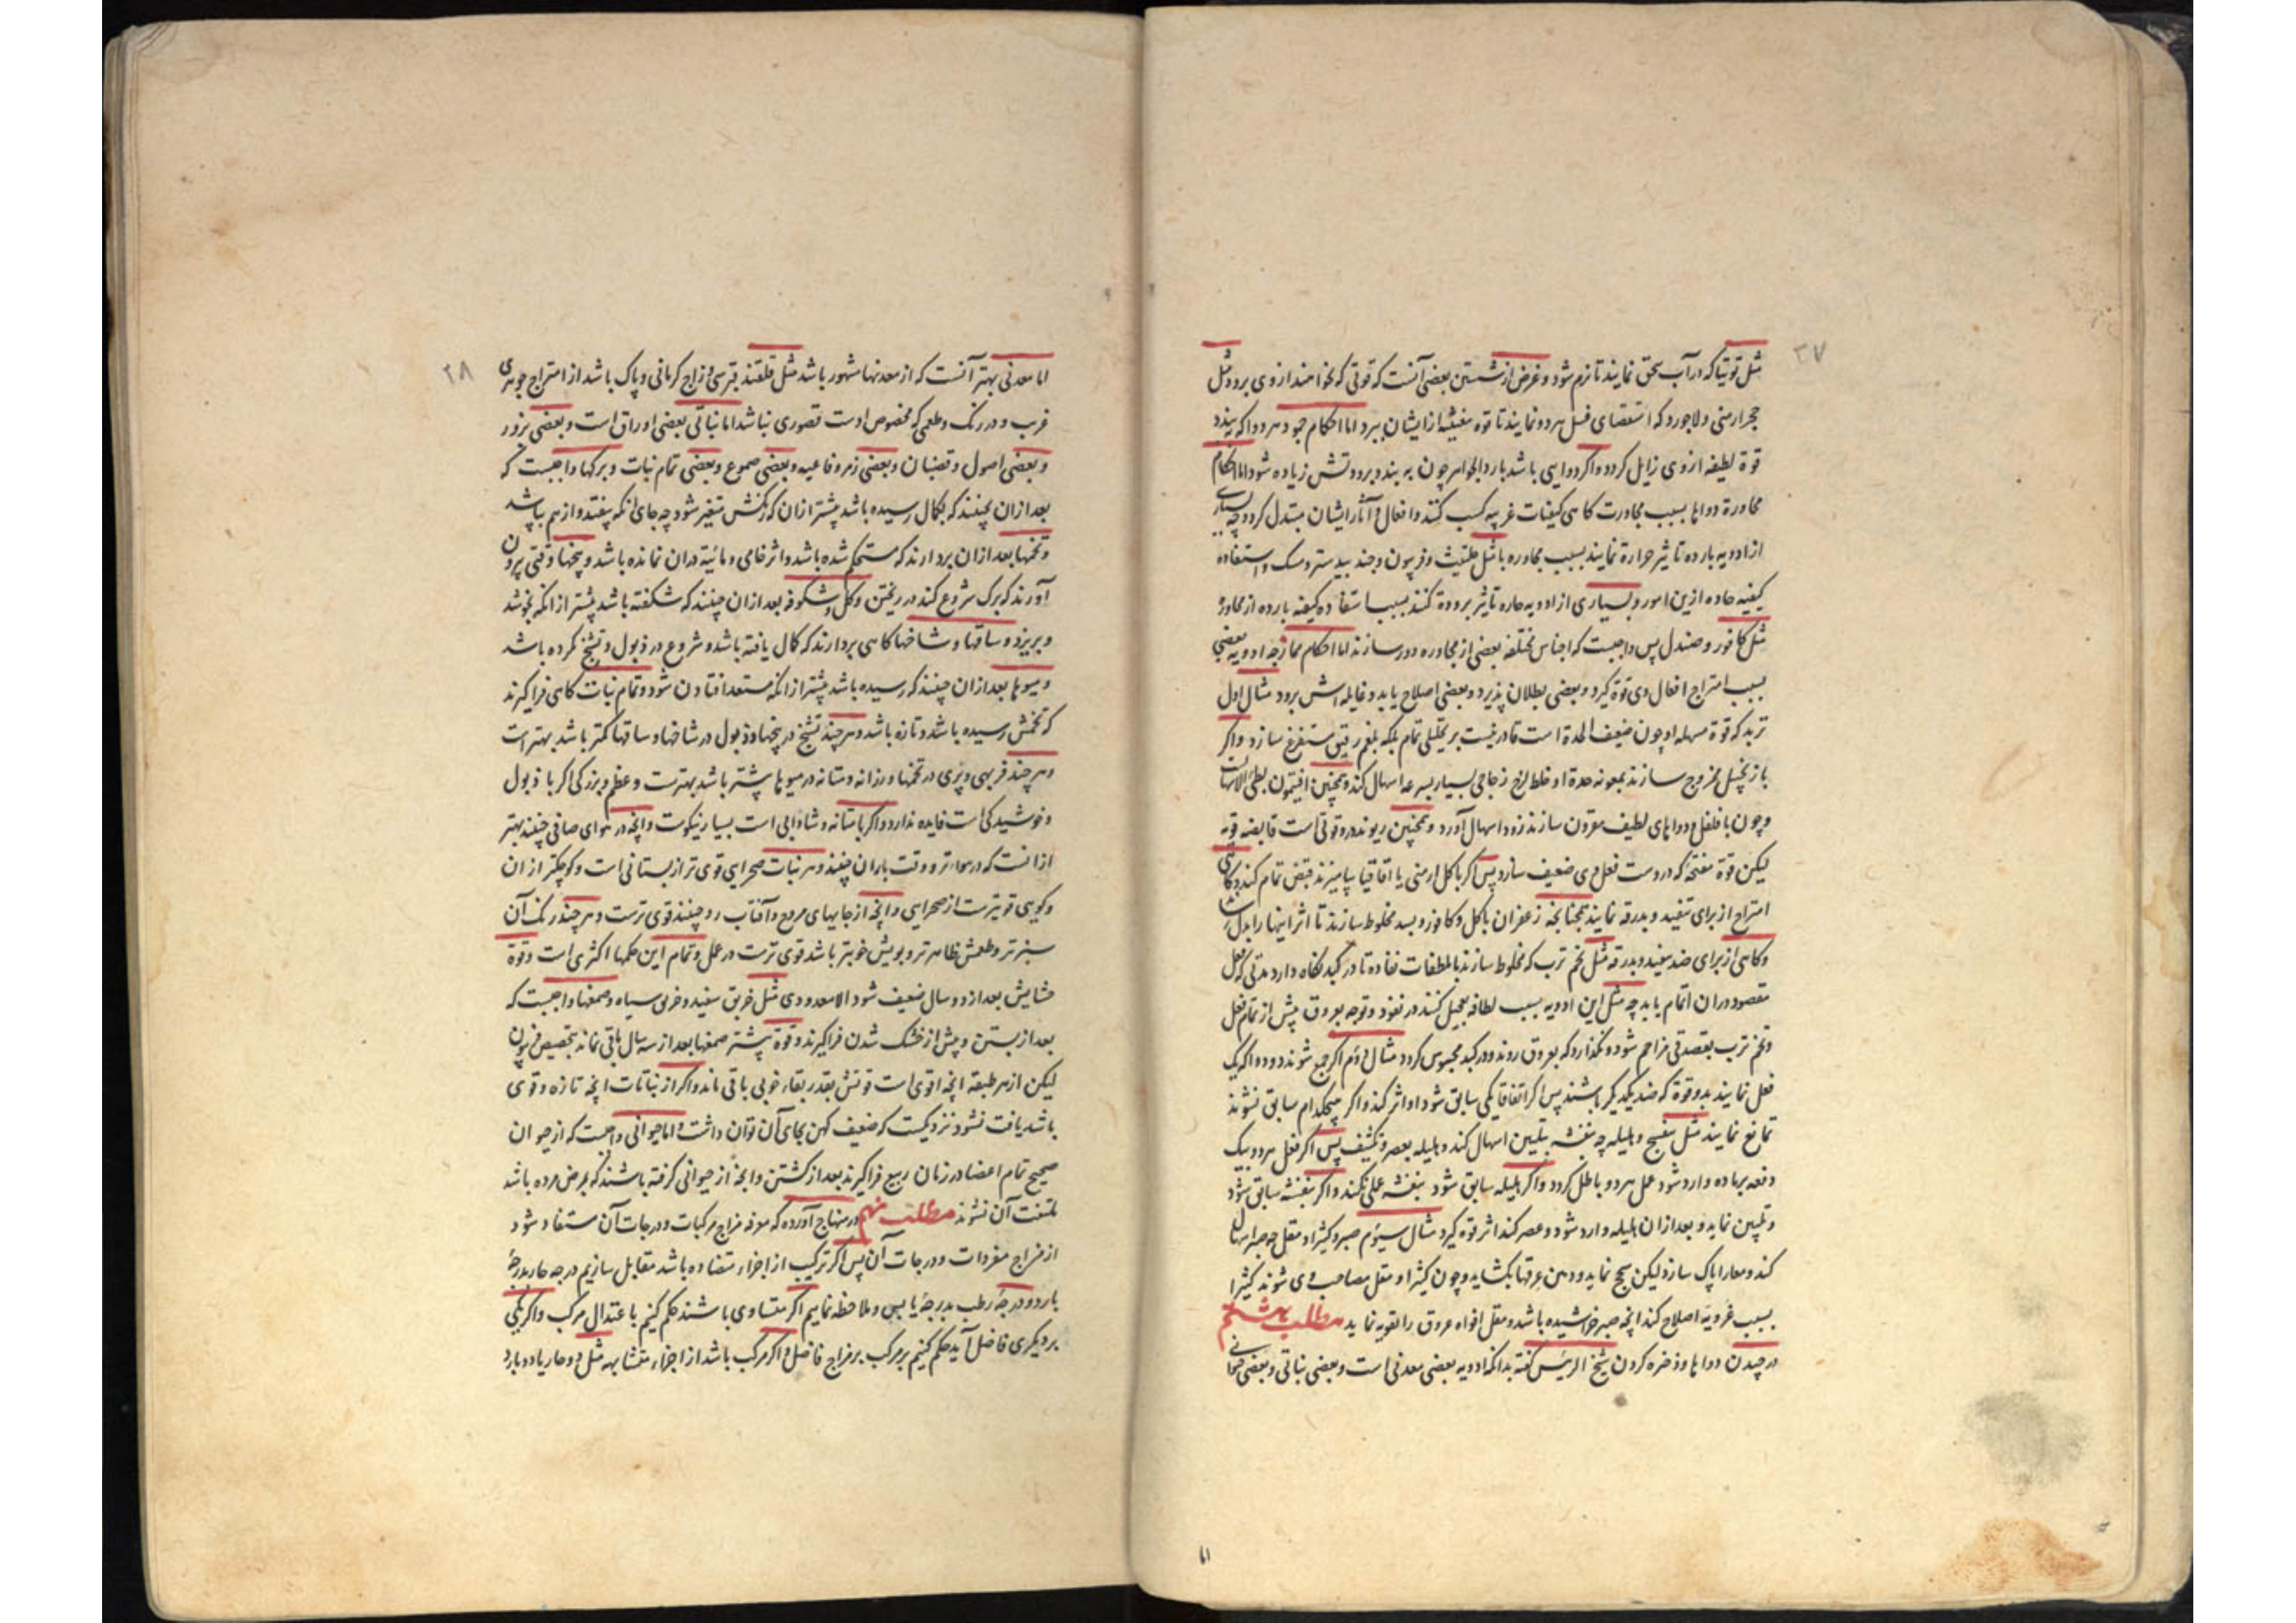 ۳۷
مثل توتیا که در آب سحق نمایند تا نرم شود و غرض از شستن بعضی آنست که قوتی که نخواهند از وی برود مثل
حجر ارمنی و لاجورد که استقصای غسل هر دو نمایند تا قوه مغثیه از ایشان ببرد اما احکام جمود هر دوا که ببندد
قوة لطیفه از وی زایل کردد و اکر دوایی باشد بارد الجواهر چون به بندد برودتش زیاده شود اما احکام
مجاورة دواها بسبب مجاورت کاهی کیفیات غریبه کسب کنند و افعال و آثار ایشان مبتدل کردد چه بسیاری
از ادویه بارده تاثیر حرارة نمایند بسبب مجاوره با مثل حلتیث و فرپیون و جند بیدستر و مسک و استفاده
کیفیه حاده ازین امور و بسیاری از ادویه حاره تاثیر برودة کنند بسبب استفاده کیفیه بارده از مجاورة
مثل کافور و صندل پس واجبست که اجناس مختلفه بعضی از مجاوره دور سازند اما احکام ممازجه ادویه بعضی
بسبب امتراج افعال وی قوة کیرد و بعضی بطلان پذیرد و بعضی اصلاح یابد و غایله اش برود مثال اول
تربد که قوة مسهله او چون ضعیف الحدة است قادر نیست بر تحلیلی تمام بلکه بلغم رقیق مستفرغ سازد و اکر
با زنجبیل ممزوج سازند بمعونه حدة او خلط لزج زجاجی بسیار بسرعه اسهال کند و همچنین افیتمون بطئ الاسهالست
و چون با فلفل و دواهای لطیف مقرون سازند زود اسهال آورد و همچنین ریوند در و قوتی است قابضه قویه
لیکن قوة مفتحه که در وست فعل وی ضعیف سازد پس اکر با کل ارمنی یا اقاقیا بیامیزند قبض تمام کند و کاهی
امتراج از برای تنفید و بدرقه نمایند همچنانچه زعفران با کل و کافور و بسد مخلوط سازند تا اثر اینها را بدل رساند
و کاهی از برای ضد تنفید و بدرقه مثل تخم ترب که مخلوط سازند با ملطفات نفاذه تا در کبد نکاه دارد مدتی که فعل
مقصود در ان اتمام یابد چه مثل این ادویه بسبب لطافه تعجیل کنند در نفوذ و توجه بعروق پیش از تمام فعل
و تخم ترب بقصد قی مزاحم شود و نکذارد که بعروق روند و در کبد محبوس کردد مثال دوم اکر جمع شوند دو دوا که یک
فعل نمایند بدو قوة که ضد یکدیکر باشند پس اکر اتفاقا یکی سابق شود او اثر کند و اکر هیچکدام سابق نشوند
تمانع نمایند مثل بنفسج و هلیله چه بنفشه بتلیین اسهال کند و هلیله بعصر و تکثیف پس اکر فعل هر دو بیک
دفعه بر ماده وارد شود عمل هر دو باطل کردد و اکر هلیله سابق شود بنفشه عملی نکند و اکر بنفشه سابق شود
و تلیین نماید و بعد ازان هلیله وارد شود و عصر کند اثر قوه کیرد مثال سیوم صبر و کثیرا و مقل چه صبر اسهال
کند و معا را پاک سازد لیکن سحج نماید و دهن عرقها بکشاید و چون کثیرا و مقل مصاحب وی شوند کثیرا
بسبب غرویة اصلاح کند انچه صبر خراشیده باشد و مقل افواه عروق را تقویه نماید مطلب هشتم
در چیدن دواها و ذخره کردن شیخ الرییس کفته بدانکه ادویه بعضی معدنی است و بعضی نباتی و بعضی حیوانی
۳۸
اما معدنی بهتر آنست که از معدنها مشهور باشد مثل قلقند قبرسی و زاج کرمانی و پاک باشد از امتراج جوهری
غریب و در رنک و طعمی که مخصوص اوست قصوری نباشد اما نباتی بعضی اوراق است و بعضی بزور
و بعضی اصول و قضبان و بعضی زهر و فاعیه و بعضی صموع و بعضی تمام نبات و برکها واجبست که
بعد ازان بچینند که بکمال رسیده باشد پیشتر ازان که رنکش متغیر شود چه جای انکه بیفتد و از هم بپاشد
و تخمها بعد ازان بردارند که مستحکم شده باشد و اثر خامی و مائیة دران نمانده باشد و بیخها وقتی بیرون
آورند که برک شروع کند در ریختن و کل و شکوفه بعد ازان چینند که شکفته باشد پیشتر از انکه بخوشد
و بریزد و ساقها و شاخها کاهی بردارند که کمال یافته باشد و شروع در ذبول و تشنج نکرده باشد
و میوها بعد ازان چینند که رسیده باشد پیشتر از انکه مستعد افتادن شود و تمام نبات کاهی فراکیرند
که تخمش رسیده باشد و تازه باشد و هر چند تشنج در بیخها و ذبول در شاخها و ساقها کمتر باشد بهتر است
و هر چند فربهی و پری در تخمها و رزانه و متانه در میوها بیشتر باشد بهترست و عظم و بزرکی اکر با ذبول
و خوشیدکی است فایده ندارد و اکر با متانه و شادابی است بسیار نیکوست و انچه در هوای صافی چینند بهتر
ازانست که در هوا تر و وقت باران چینند و هر نبات صحرایی قوی تر از بستانی است و کوچکتر ازان
و کوهی قویترست از صحرایی و انچه از جایهای مروح و آفتاب رو چینند قوی ترست و هر چند رنک آن
سبزتر و طعمش ظاهرتر و بویش خوبتر باشد قوی ترست در عمل و تمام این حکمها اکثری است و قوة
حشایش بعد از دو سال ضعیف شود الا معدودی مثل خربق سفید و خربق سیاه و صمغها واجبست که
بعد از بستن و پیش از خشک شدن فراکیرند و قوة بیشتر صمغها بعد از سه سال باقی نماند بتخصیص فرپیون
لیکن از هر طبقه انچه اقوی است قوتش بقدر بقاء خوبی باقی ماند و اکر از نباتات انچه تازه و قوی
باشد یافت نشود نزدیکست که ضعیف کهن بجای آن توان داشت و اما حیوانی واجبست که از حیوان
صحیح تمام اعضا در زمان ربیع فراکیرند بعد از کشتن و انچه از حیوانی کرفته باشند که بمرض مرده باشد
ملتفت آن نشوند مطلب نهم در منهاج آورده که معرفه مزاج مرکبات و درجات آن مستفاد شود
از مزاج مفردات و درجات آن پس اکر ترکیب از اجزاء متضاده باشد مقابل سازیم درجه حار بدرجهٔ
بارد و درجهٔ رطب بدرجهٔ یابس و ملاحظه نماییم اکر متساوی باشند حکم کنیم با عتدال مرکب و اکر یکی
بر دیکری فاضل آید حکم کنیم بر مرکب بر مزاج فاضل و اکر مرکب باشد از اجزاء متشابهه مثل دو حار یا دو بارد